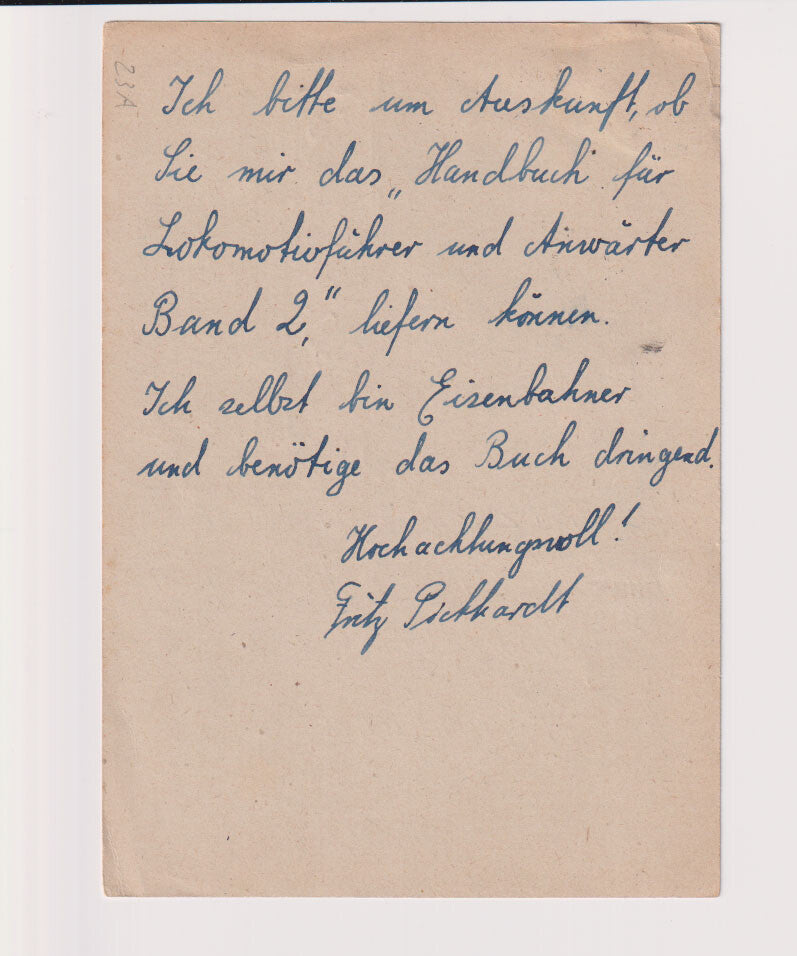 Ich bitte um Auskunft, ob
Sie mir das „Handbuch für
Lokomotivführer und Anwärter
Band 2," liefern können.
Ich selbst bin Eisenbahner
und benötige das Buch dringend.
Hochachtungsvoll!
Fritz Pickhardt
23A